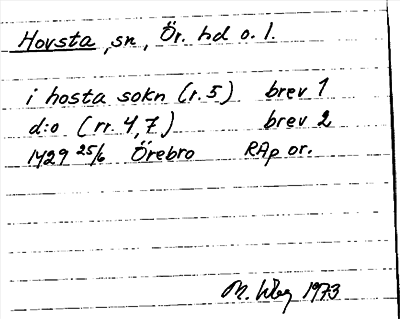 Hovsta, sn, Ör. hd o. l.
i hosta sokn (r. 5) brev 1
d:o (rr. 4, 7) brev 2
1429 25/6 Örebro RAp or.
M. 1973